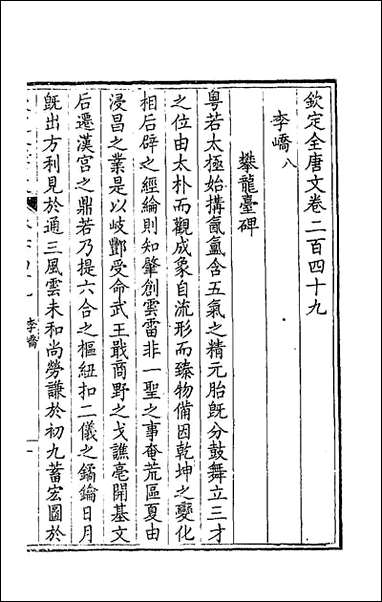 欽定全唐文卷二百四十九
李嶠八
攀龍臺碑
粵若太極始搆氤氳含五氣之精元胎旣分鼓舞立三才
之位由太朴而觀成象自流形而臻物備因乾坤之變化
相后辟之經綸則知肇創雲雷非一聖之事奄荒區夏由
浸昌之業是以岐酆受命武王戢商野之戈譙亳開基文
后遷漢宮之鼎若乃提六合之樞紐扣二儀之鐍鑰日月
旣出方利見於通三風雲未和尚勞謙於初九蓄宏圖於
李嶠
一